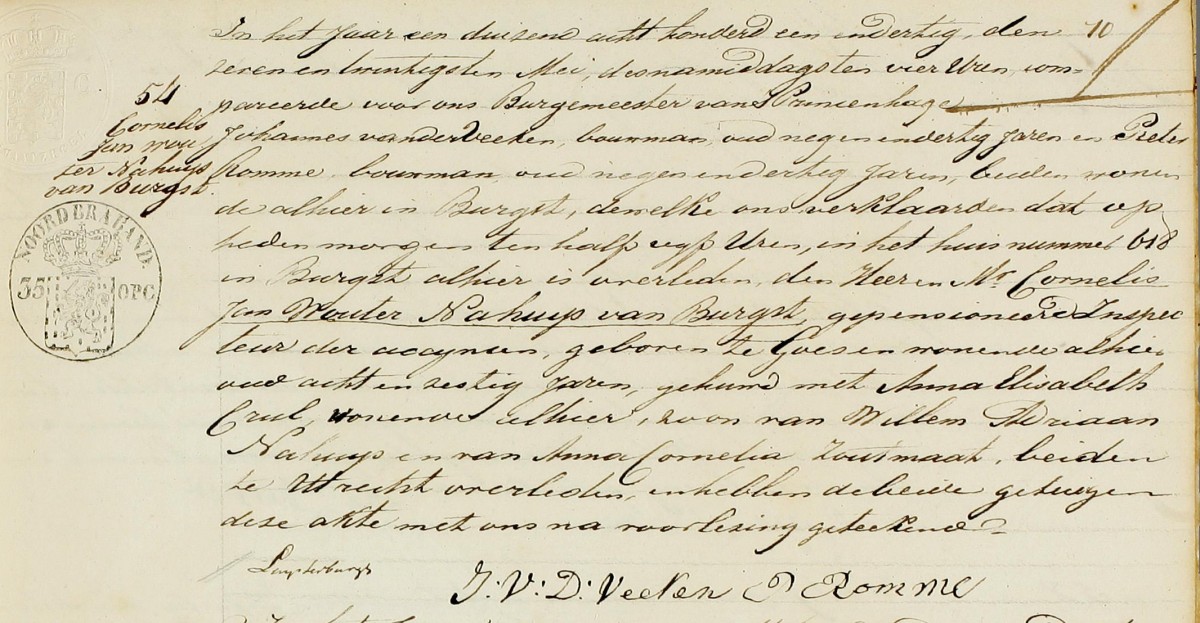 In het Jaar een duizend acht honderd een en dertig, den 10
seven en twintigsten Mei, des namiddags ten vier Uren, com=
pareerde voor ons Burgemeester van Princenhage
54
Cornelis
Jan Wou
ter Nahuijs
van Burgst.
Johannes van der Veeken, bouwman, oud negen en dertig Jaren en Pieter
Romme, bouwman, oud negen en dertig Jaren, beiden wonen
de alhier in Burgst, dewelke ons verklaarden dat op
heden morgen ten half vijf Uren, in het huis nummer 618
in Burgst alhier is overleden, den Heer en Mr. Cornelis
Jan Wouter Nahuijs van Burgst, gepensioneerd Inspec
teur der accijnsen, geboren te Goes en wonende alhier
oud acht en sestig Jaren, gehuwd met Anna Elisabeth
Crul, wonende alhier, zoon van Willem Adriaan
Nahuijs en van Anna Cornelia Zoutmaat, beiden
te Uttrecht overleden, en hebben de beide getuigen
dese akte met ons na voorlezing geteekend.
NOORDBRABAND.
35 OPC
J: V: D: Veeken P Romme